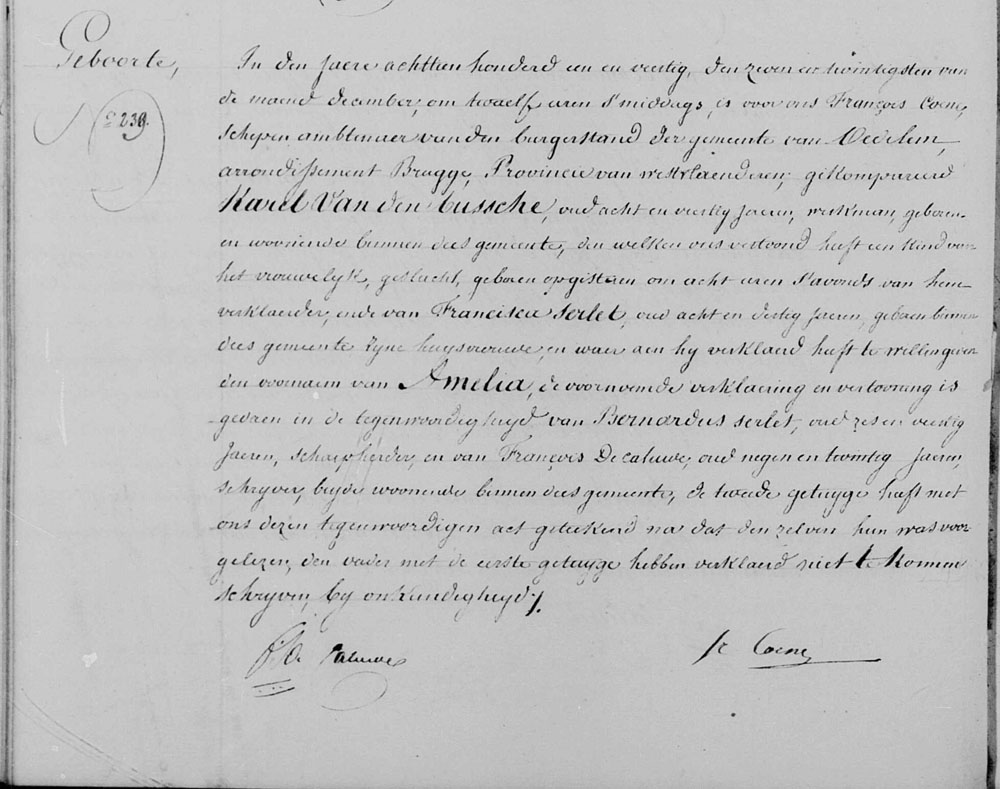 Geboorte,
N° 239.
In den Jaere achttien honderd een en veertig, den zeven en twintigsten van
de maend december, om twaelf uren s'middags, is voor ons François Coene,
schepen ambtenaer van den burgerstand der gemeente van Oedelem,
arrondissement Brugge, Provincie van westvlaenderen, gekompareerd
Karel Van den bussche, oud acht en veertig Jaeren, werkman, geboren
en woonende binnen dees gemeente, den welken ons vertoond heeft een kind van
het vrouwelyk, geslacht, geboren op gisteren om acht uren s'avonds van hem
verklaerder, ende van Francisca serlet, oud acht en dertig Jaeren, geboren binnen
dees gemeente zyne huysvrouwe, en waer aen hy verklaerd heeft te willen geven
den voornaem van Amelia, de voornoemde verklaering en vertooning is
gedaen in de tegenwoordigheyd van Bernardus serlet, oud zes en veertig
Jaeren, schaepherder, en van François Decaluwe, oud negen en twintig Jaeren,
schryver, beyde woonende binnen dees gemeente, de tweede getuyge heeft met
ons dezen tegenwoordigen act geteekend na dat den zelven hun was voor-
gelezen, den vader met de eerste getuyge hebben verklaerd niet te konnen
schryven, by onkundigheyd /.
f. De Caluwe
fr Coene